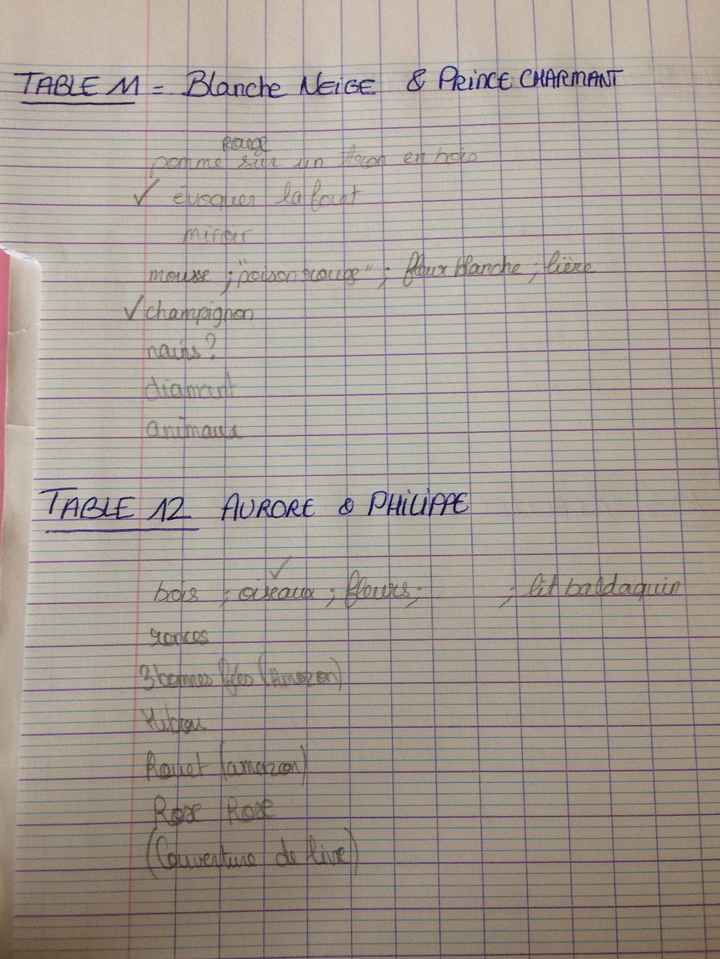 TABLE 11 = Blanche NEIGE & PRINCE CHARMANT
Rouge
pomme sur un en bois
✓ évoquer la forêt
miroir
mousse ; "poison rouge" ; fleur blanche ; lière
✓ champignon
nains ?
diamant
animaux
TABLE 12 AURORE & PHILIPPE
✓
bois ; oiseaux ; fleurs ; ; lit baldaquin
ronces
3 bonnes fées (Amazon)
Hibou
Rouet (amazon)
Rose Rose
(Couverture de livre)